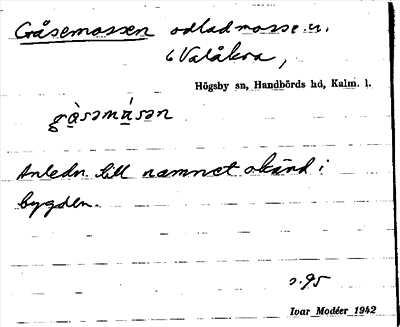 Gåsemossen odlad mosse u.
Valåkra,
Högsby sn, Handbörds hd, Kalm. l.
gà̊səmàsən
Anledn. till namnet okänd i
bygden.
s. 95
Ivar Modéer 1942